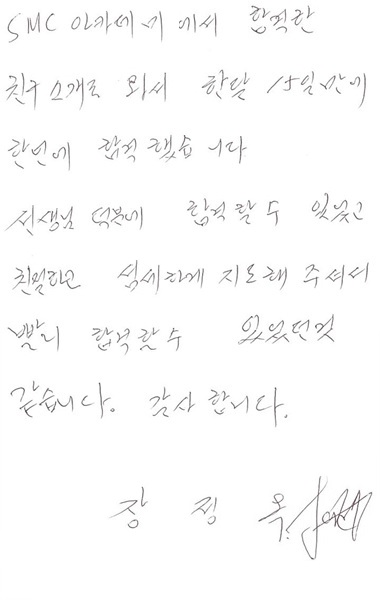 SMC 아카데미에서 합격한
친구 소개로 와서 한달 15일만에
한번에 합격 했습니다
선생님 덕분에 합격 할 수 있었고
친절하고 섬세하게 지도해 주셔서
빨리 합격 할 수 있었던것
같습니다. 감사 합니다.
장 정 옥.